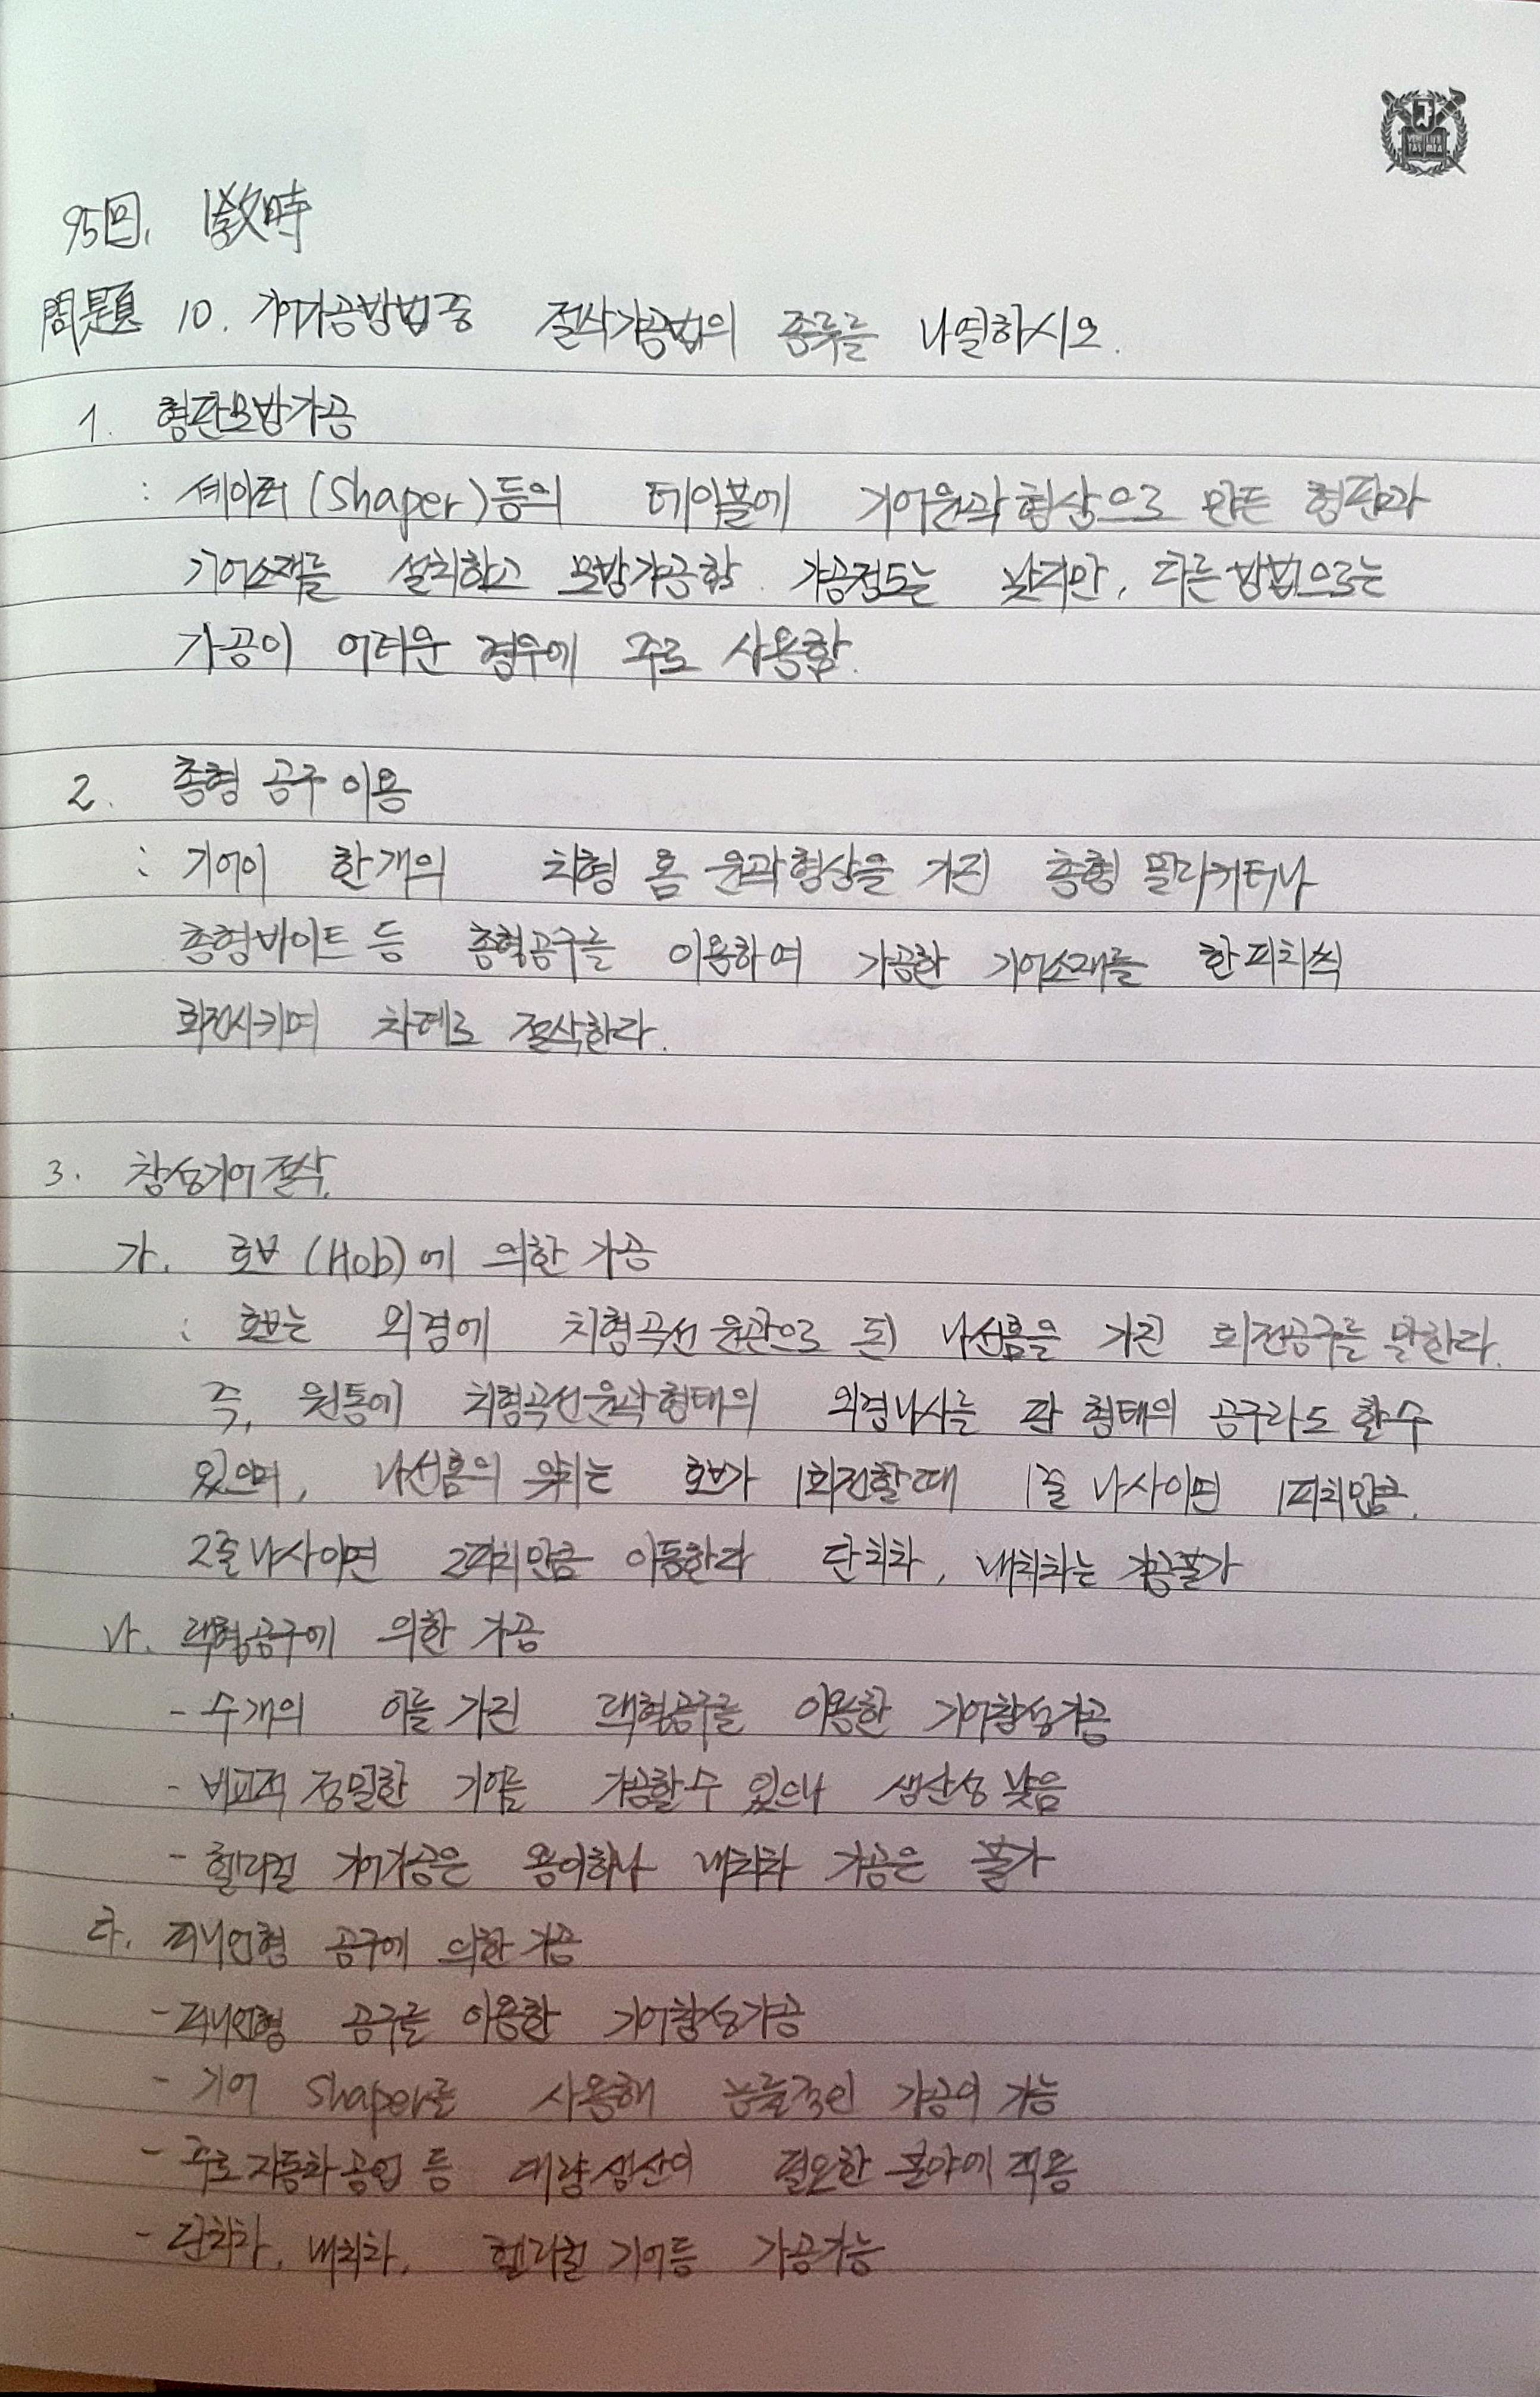 95回. 1敎時
問題 10. 기어가공방법중 절삭가공법의 종류를 나열하시오.
1. 형판모방가공
: 셰이퍼(Shaper)등의 테이블에 기어윤곽형상으로 만든 형판과
기어소재를 설치하고 모방가공함. 가공정도는 낮지만, 다른방법으로는
가공이 어려운 경우에 주로 사용함.
2. 총형 공구 이용
: 기어이 한개의 치형 홈 윤곽형상을 가진 총형 밀링커터나
총형바이트 등 총형공구를 이용하여 가공한 기어소재를 한피치씩
회전시키며 차례로 절삭한다.
3. 창성기어절삭.
가. 호브 (Hob)에 의한 가공
: 호브는 외경에 치형곡선 윤곽으로 된 나선홈을 가진 회전공구를 말한다.
즉, 원통에 치형곡선윤곽형태의 외경나사를 판 형태의 공구라도 할수
있으며, 나선홈의 위치는 호브가 1회전할때 1줄 나사이면 1피치만큼.
2줄나사이면 2피치만큼 이동한다 단치차, 내치차는 가공불가
나. 랙형공구에 의한 가공
- 수개의 이를 가진 랙형공구를 이용한 기어창성가공
- 비교적 정밀한 기어를 가공할수 있으나 생산성 낮음
- 헬리컬 기어가공은 용이하나 내치차 가공은 불가
다. 피니언형 공구에 의한 가공
- 피니언형 공구를 이용한 기어창성가공
- 기어 Shaper를 사용해 능률적인 가공이 가능
- 주로 자동차공업 등 대량생산이 필요한 분야에 적용
- 단치차, 내치차, 헬리컬 기어등 가공가능